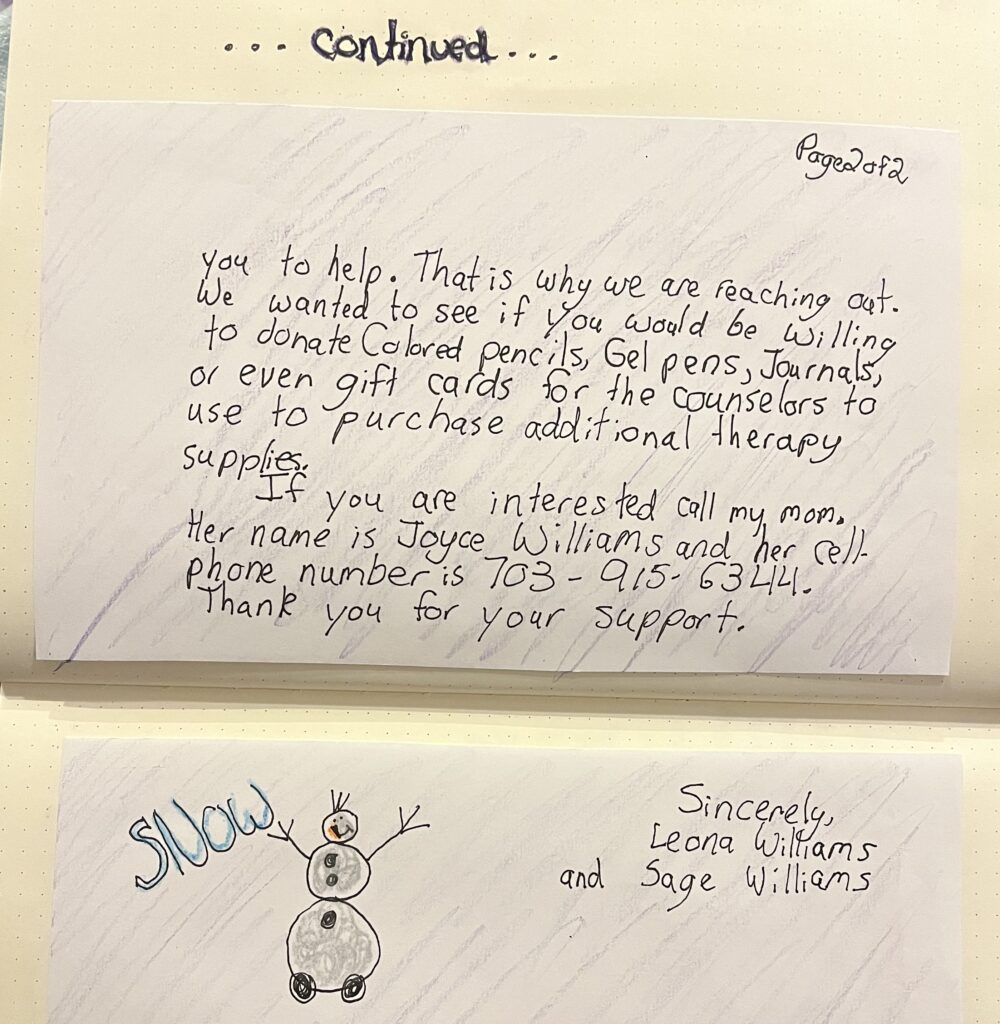 ... continued...
Page 2 of 2
you to help. That is why we are reaching out.
We wanted to see if you would be willing
to donate Colored pencils, Gel pens, Journals,
or even gift cards for the counselors to
use to purchase additional therapy
supplies.
If you are interested call my mom.
Her name is Joyce Williams and her cell-
phone number is 703-915-6344.
Thank you for your support.
SNOW
Sincerely,
Leona Williams
and Sage Williams